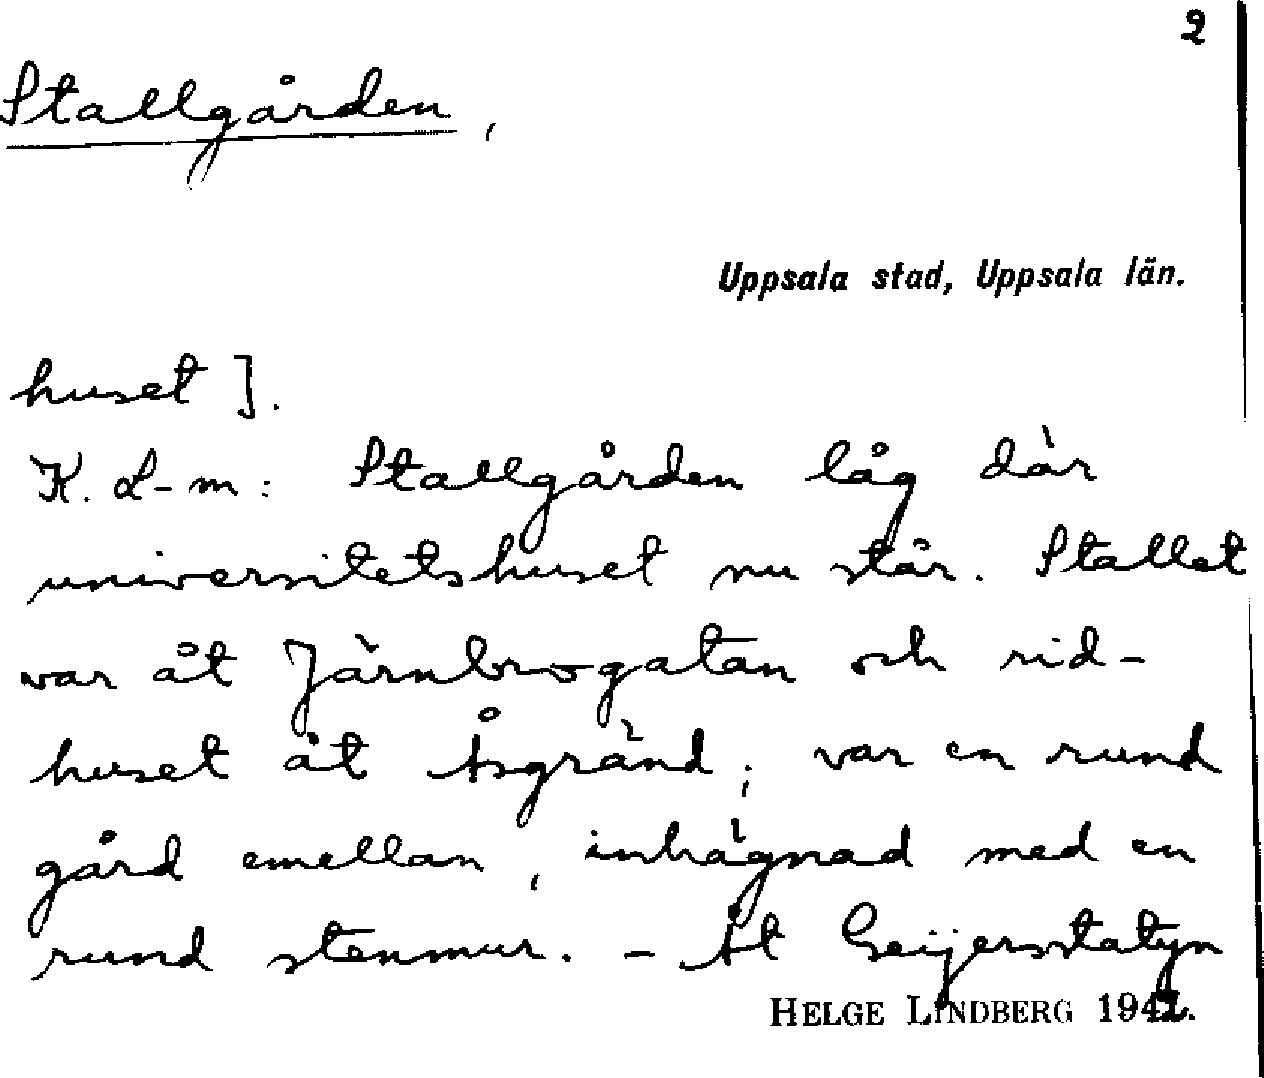 2
Stallgården,
Uppsala stad, Uppsala län.
huset].
K. L-m: Stallgården låg där
universitetshuset nu står. Stallet
var åt Järnbrogatan och rid-
huset åt Åsgränd; var en rund
gård emellan, inhägnad med en
rund stenmur. - Åt Geijerstatyn
HELGE LINDBERG